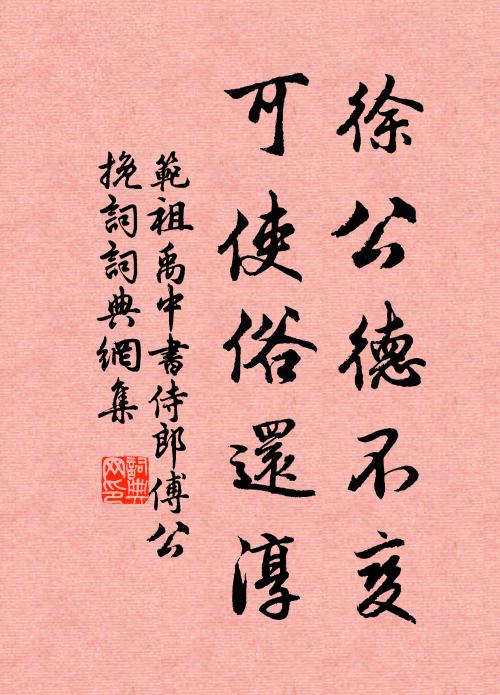 徐公德不变
可使俗還淳
範祖禹中書侍郎傅公
挽詞詞典網集
詞典
网印